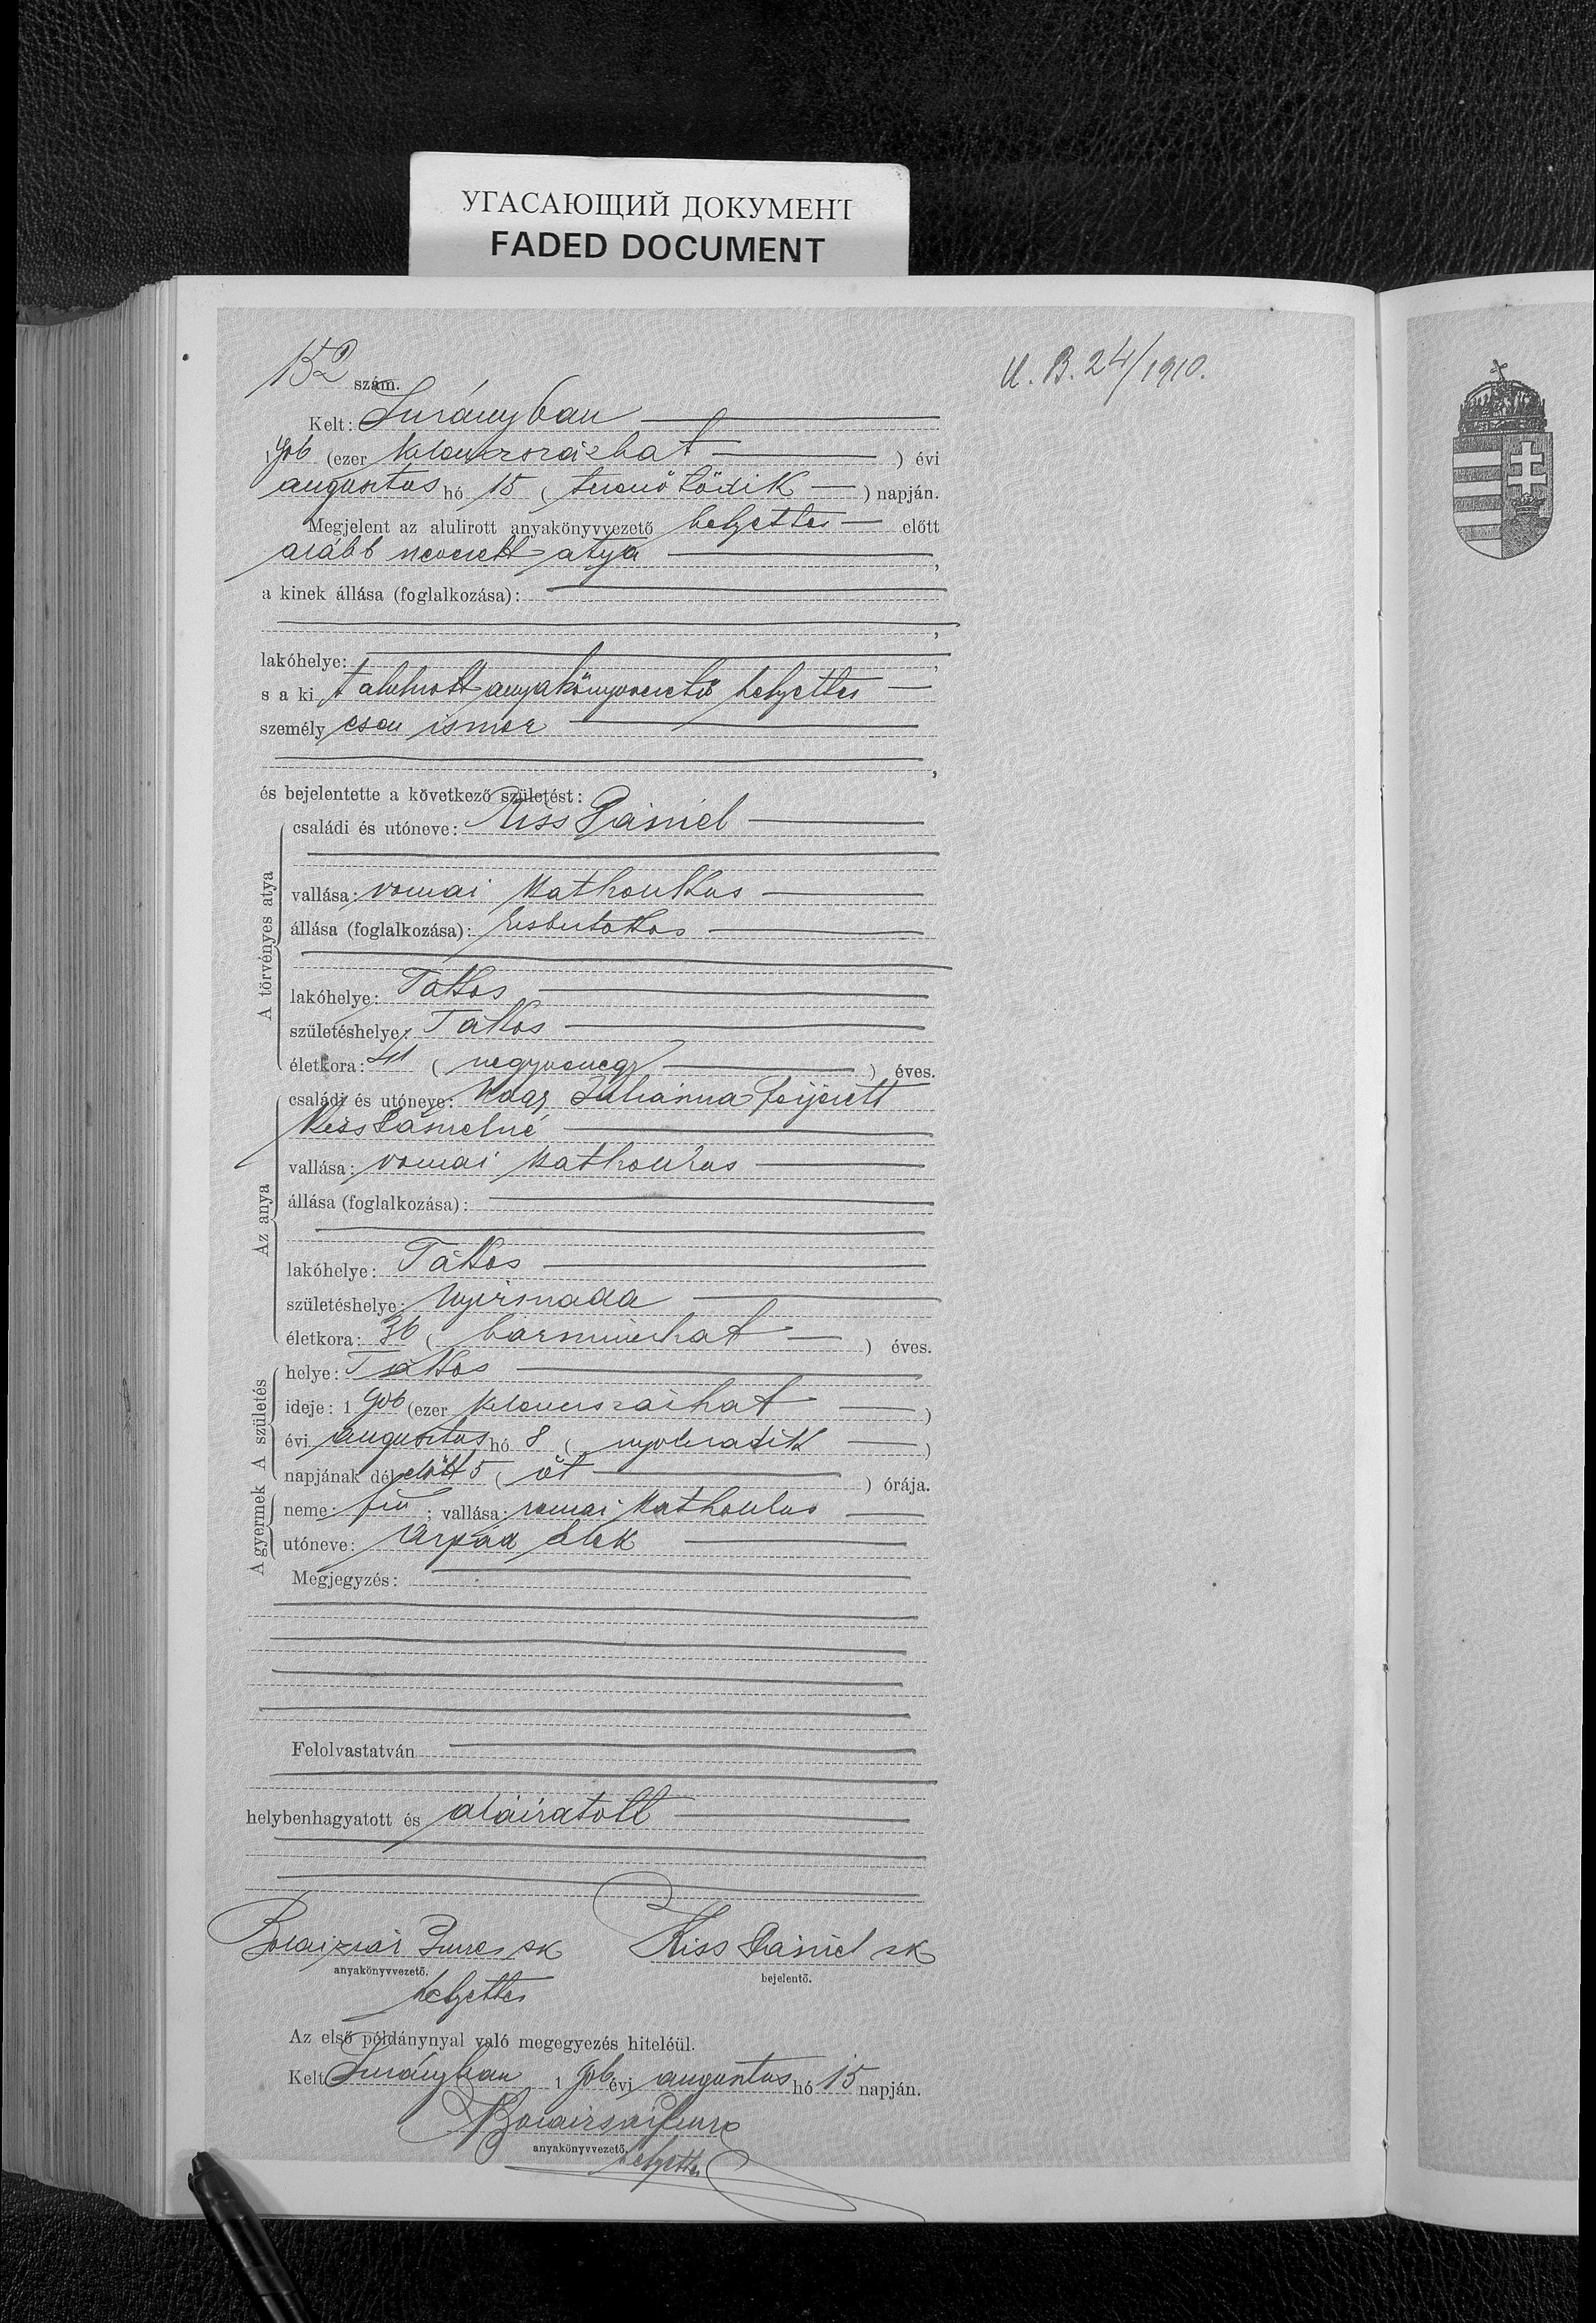 УГАСАЮЩИЙ ДОКУМЕНТ
FADED DOCUMENT
152 szám.
U. B. 24/1910.
Kelt: Surányban
1906 (ezer kilencszázhat ) évi
augusztus hó 15 ( tizenötödik ) napján.
Megjelent az alulirott anyakönyvvezető helyettes előtt
alább nevezett atya ,
a kinek állása (foglalkozása):
,
lakóhelye: ,
s a kit alulirott anyakönyvvezető helyettes
személyesen ismer
,
és bejelentette a következő születést:
A törvényes atya
családi és utóneve: Kiss Dániel
vallása: romai katholikus
állása (foglalkozása): kisbirtokos
lakóhelye: Tákos
születéshelye: Tákos
életkora: 41 ( negyvenegy ) éves.
Az anya
családi és utóneve: Nagy Juliánna férjezett
Kiss Dánielné
vallása: romai katholikus
állása (foglalkozása):
lakóhelye: Tákos
születéshelye: Nyirmada
életkora: 36 ( harminczhat ) éves.
A születés
helye: Tákos
ideje: 1 906 (ezer kilenczszázhat )
évi augusztus hó 8 ( nyolczadik )
napjának délelőtt 5 ( öt ) órája.
A gyermek
neme: fiu ; vallása: romai katholikus
utóneve: Árpád Elek
Megjegyzés:
Felolvastatván
helybenhagyatott és aláiratott
Imre sk Kiss Dániel sk
anyakönyvvezető. bejelentő.
helyettes
Az első példánynyal való megegyezés hiteléül.
Kelt Surányban 1 906 évi augusztus hó 15 napján.
Imre
anyakönyvvezető.
helyettes